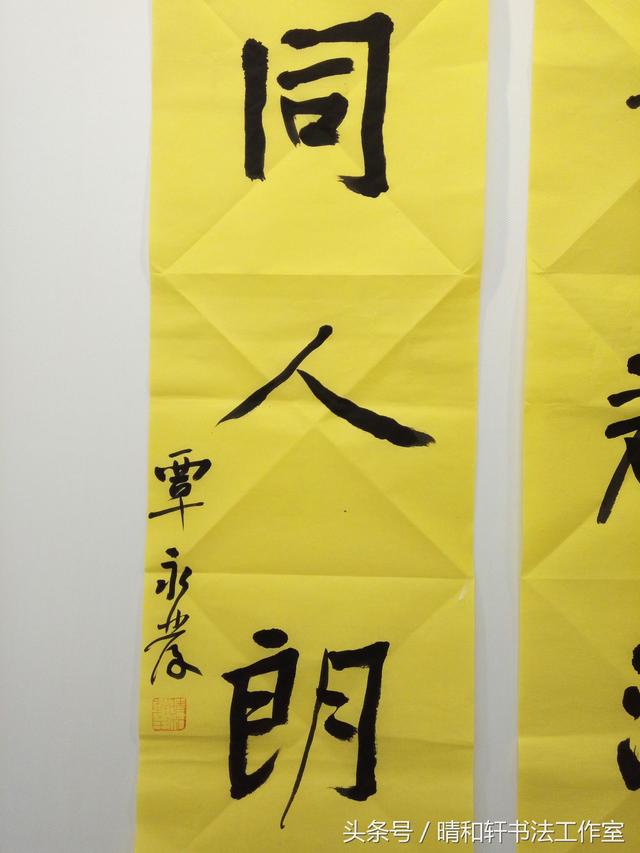 同人朗
覃永孝
头条号／晴和轩书法工作室